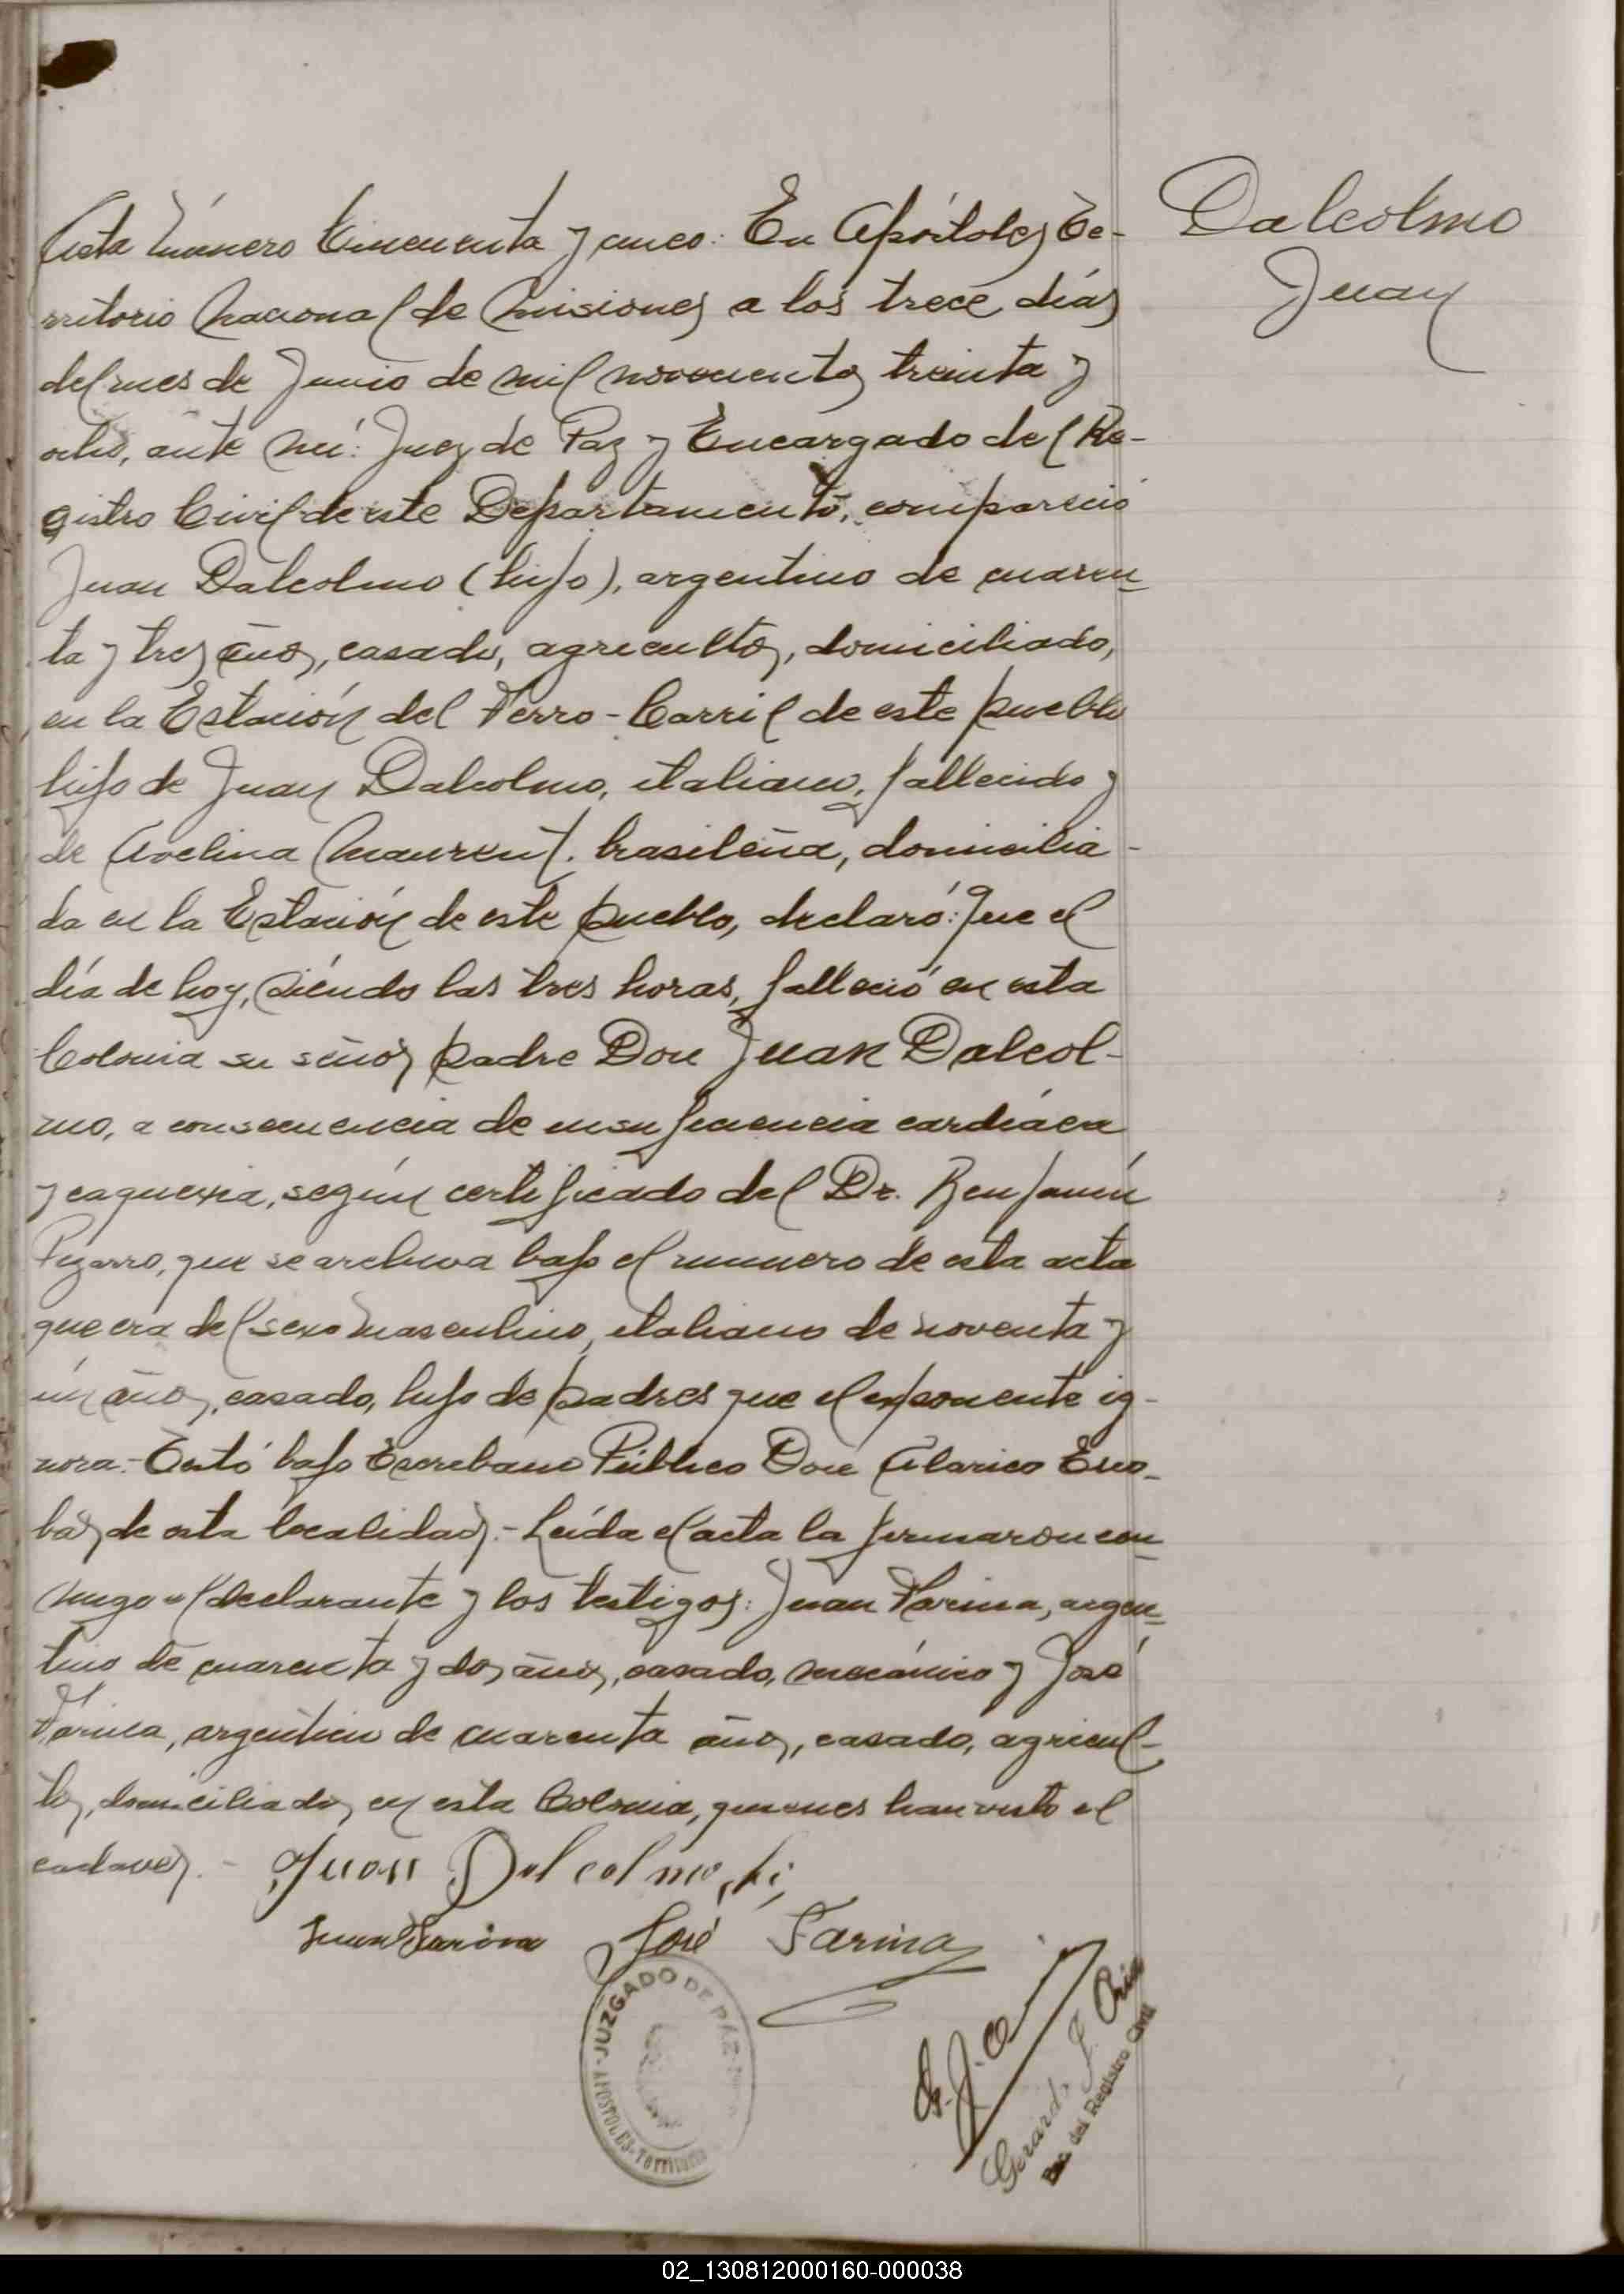 Dalcolmo
Juan
Acta número Cincuenta y cinco: En Apóstoles Te-
rritorio Nacional de Misiones a los trece días
del mes de Junio de mil novecientos treinta y
ocho, ante mí: Juez de Paz y Encargado del Re-
gistro Civil de este Departamento, compareció
Juan Dalcolmo (hijo), argentino de cuaren-
ta y tres años, casado, agricultor, domiciliado,
en la Estación del Ferro-Carril de este pueblo
hijo de Juan Dalcolmo, italiano, fallecido y
de Avelina brasileña, domicilia-
da en la Estación de este pueblo, declaró: Que el
día de hoy, siendo las tres horas, falleció en esta
Colonia su señor padre Don Juan Dalcol-
mo, a consecuencia de insuficiencia cardíaca
y caquexia, según certificado del Dr. Benjamín
Pizarro, que se archiva bajo el numero de esta acta
que era del sexo masculino, italiano de noventa y
un años, casado, hijo de padres que el exponente ig-
nora.- Testó bajo Escribano Público Don Alarico Esco-
bar, de esta localidad.- Leída el acta la firmaron con-
migo el declarante y los testigos: Juan Farina, argen-
tino de cuarenta y dos años, casado, mecánico y José
Farina, argentino de cuarenta años, casado, agricul-
tor, domiciliados en esta Colonia, quienes han visto el
cadaver.- Juan Dalcolmo, hi
Juan Farina José Farina
JUZGADO DE PAZ
APOSTOLES - Territorio
G. J. O
Gerardo J.
Enc. del Registro Civil
02_130812000160-000038